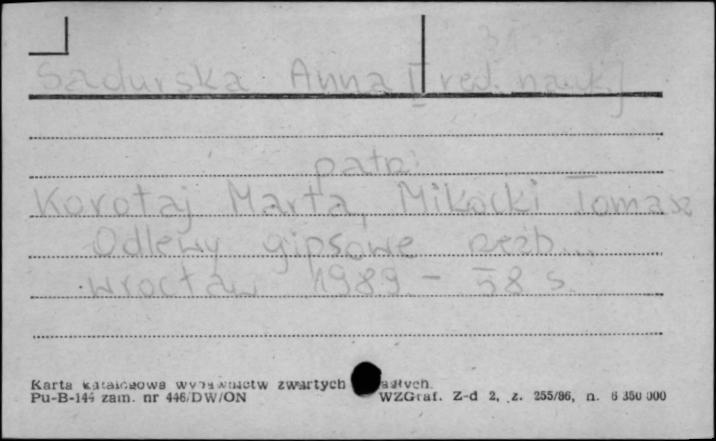 Sadurska Anna [red. nauk]
patrz:
Korotaj Marta, Mikocki Tomasz
Odlewy gipsowe rzeźb...
Wrocław 1989 - 58 s.
Karta katalogowa wydawnictw zwartych
Pu-B-144 zam. nr 446/DW/ON WZGraf. Z-d 2, z. 255/86, n. 6 350 000